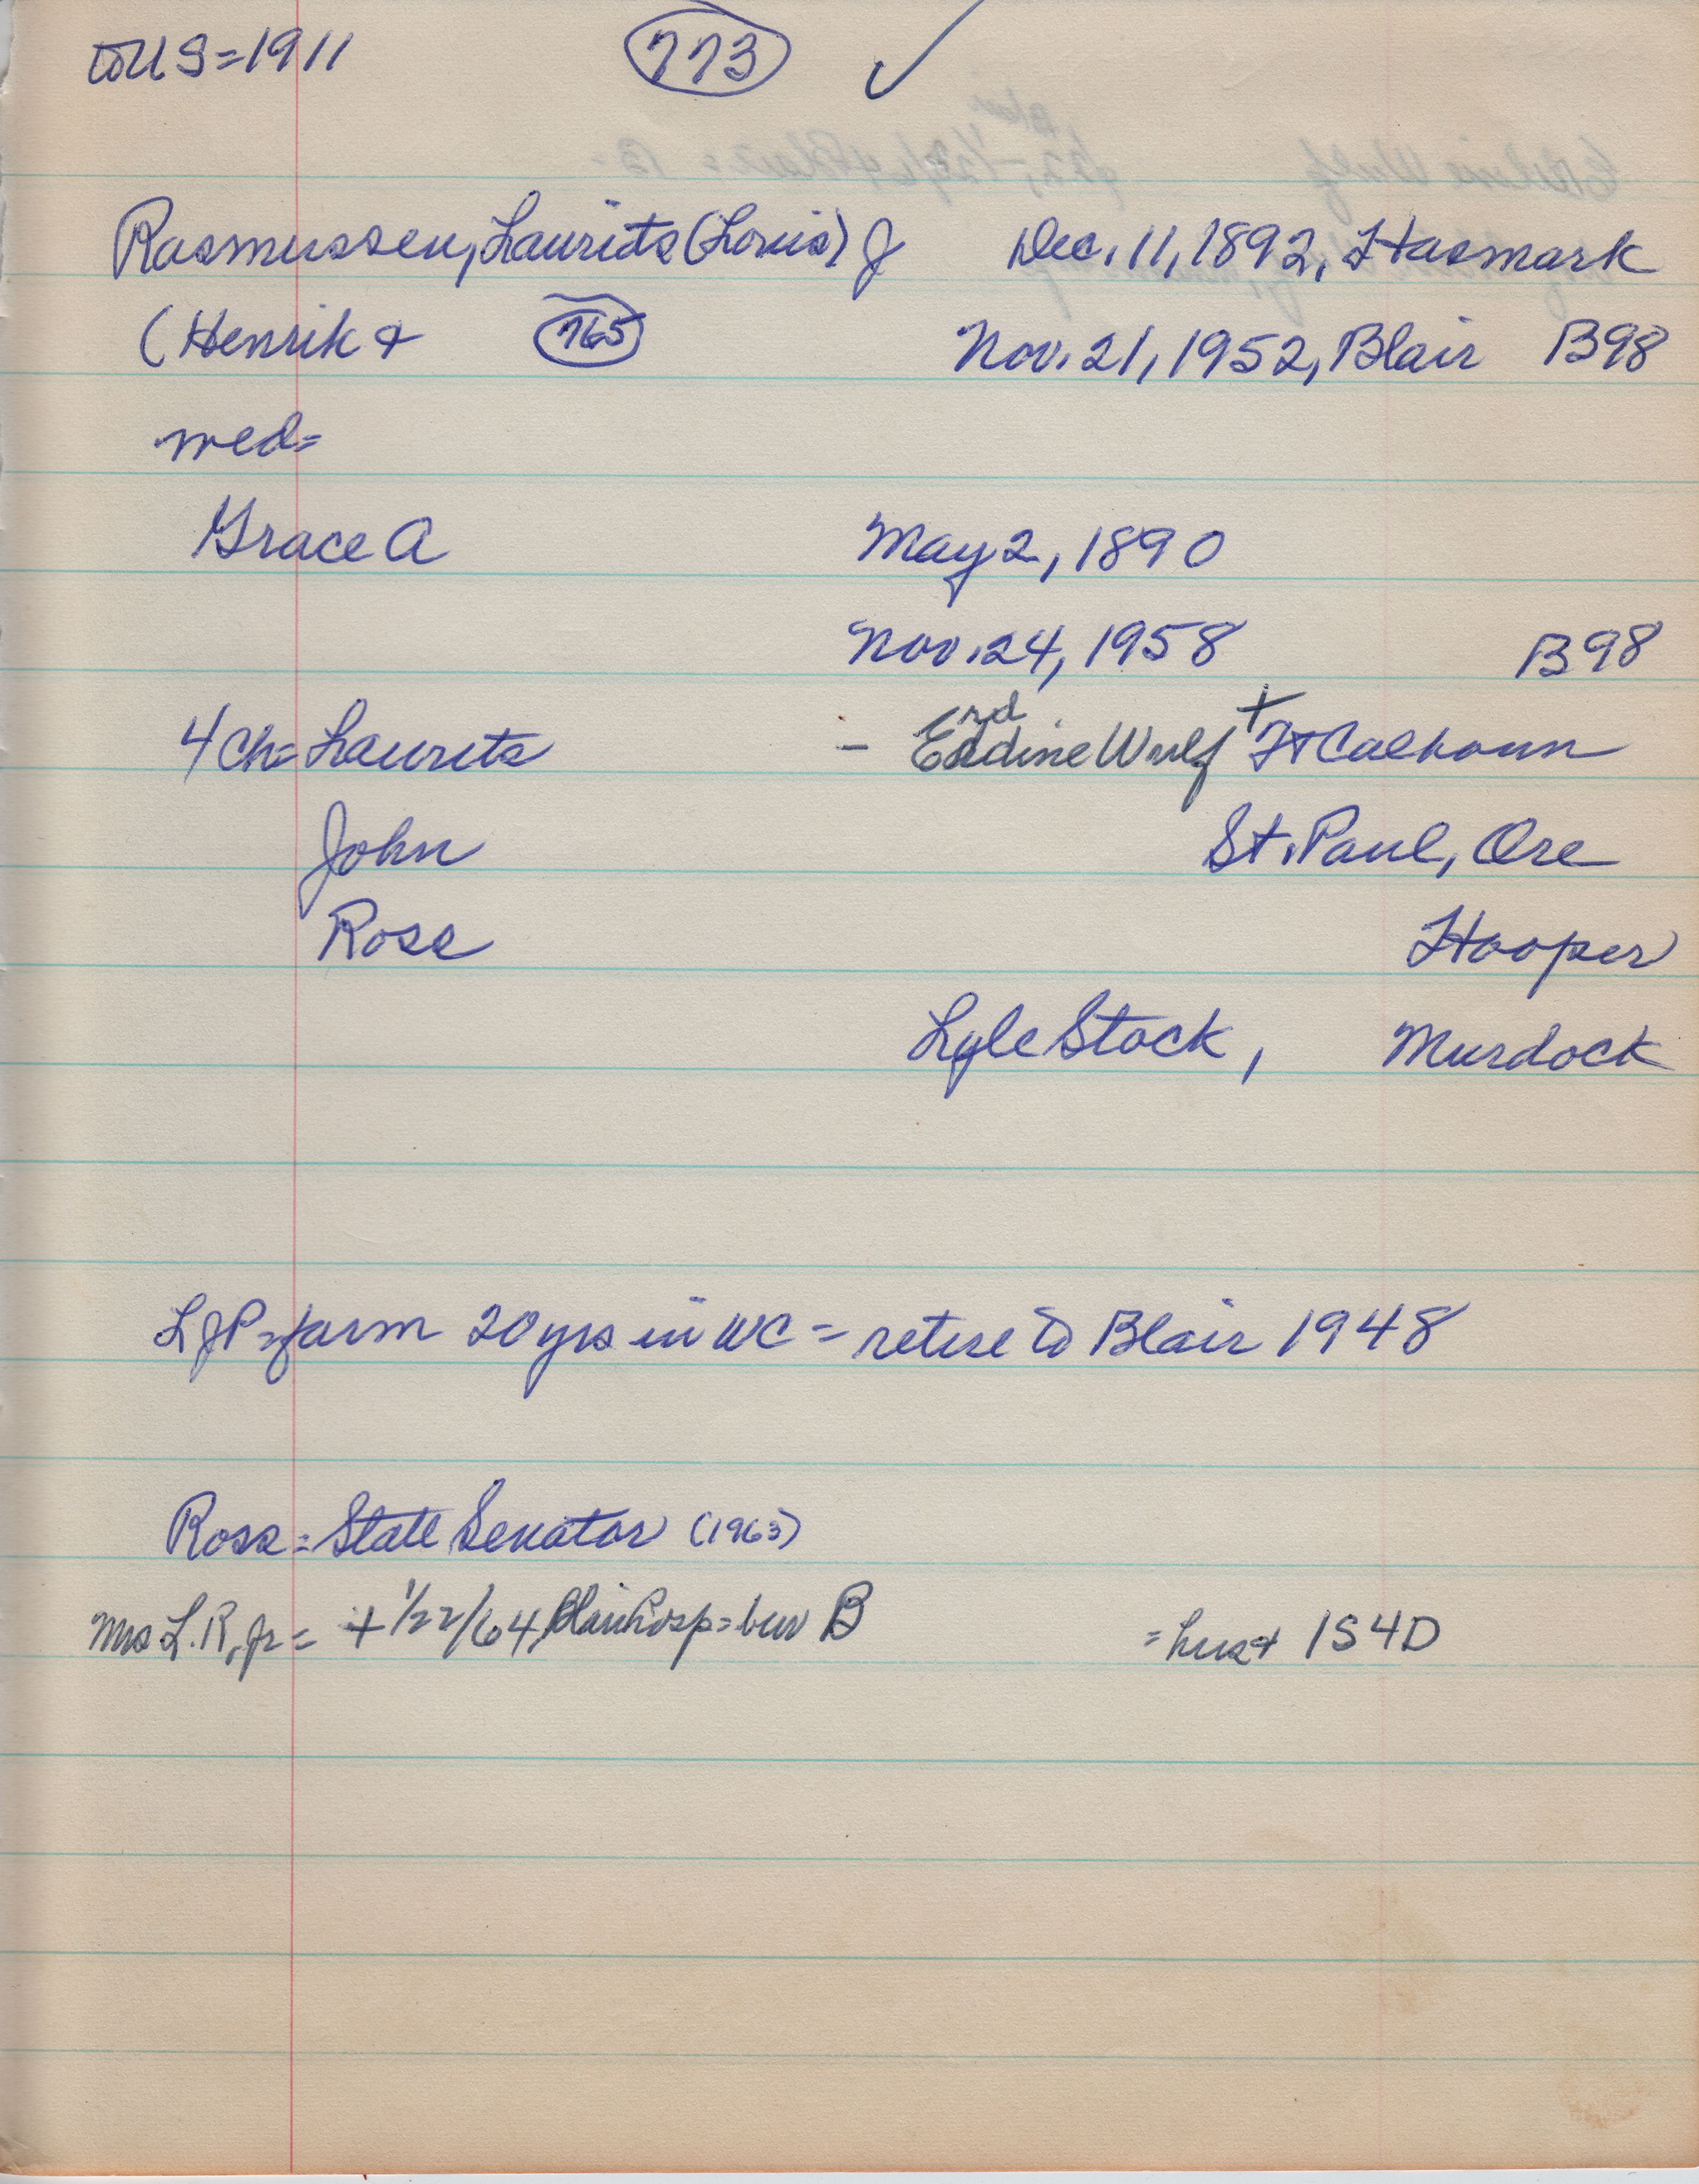 to US=1911 773 ✓
Rasmussen, Laurits (Louis) J Dec. 11, 1892, Hasmark
(Henrik + 765 Nov. 21, 1952, Blair B98
med=
Grace A May 2, 1890
Nov. 24, 1958 B98
rd
4 Ch= Laurits - Eddine Wulf + Ft Calhoun
John St. Paul, Ore
Ross Hooper
Lyle Stock, Murdock
LJP=farm 20 yrs in WC = retire to Blair 1948
Ross= State Senator (1963)
Mrs L.R, Jr= + 1/22/64, Blair hosp= bur B = hus + 1S 4D